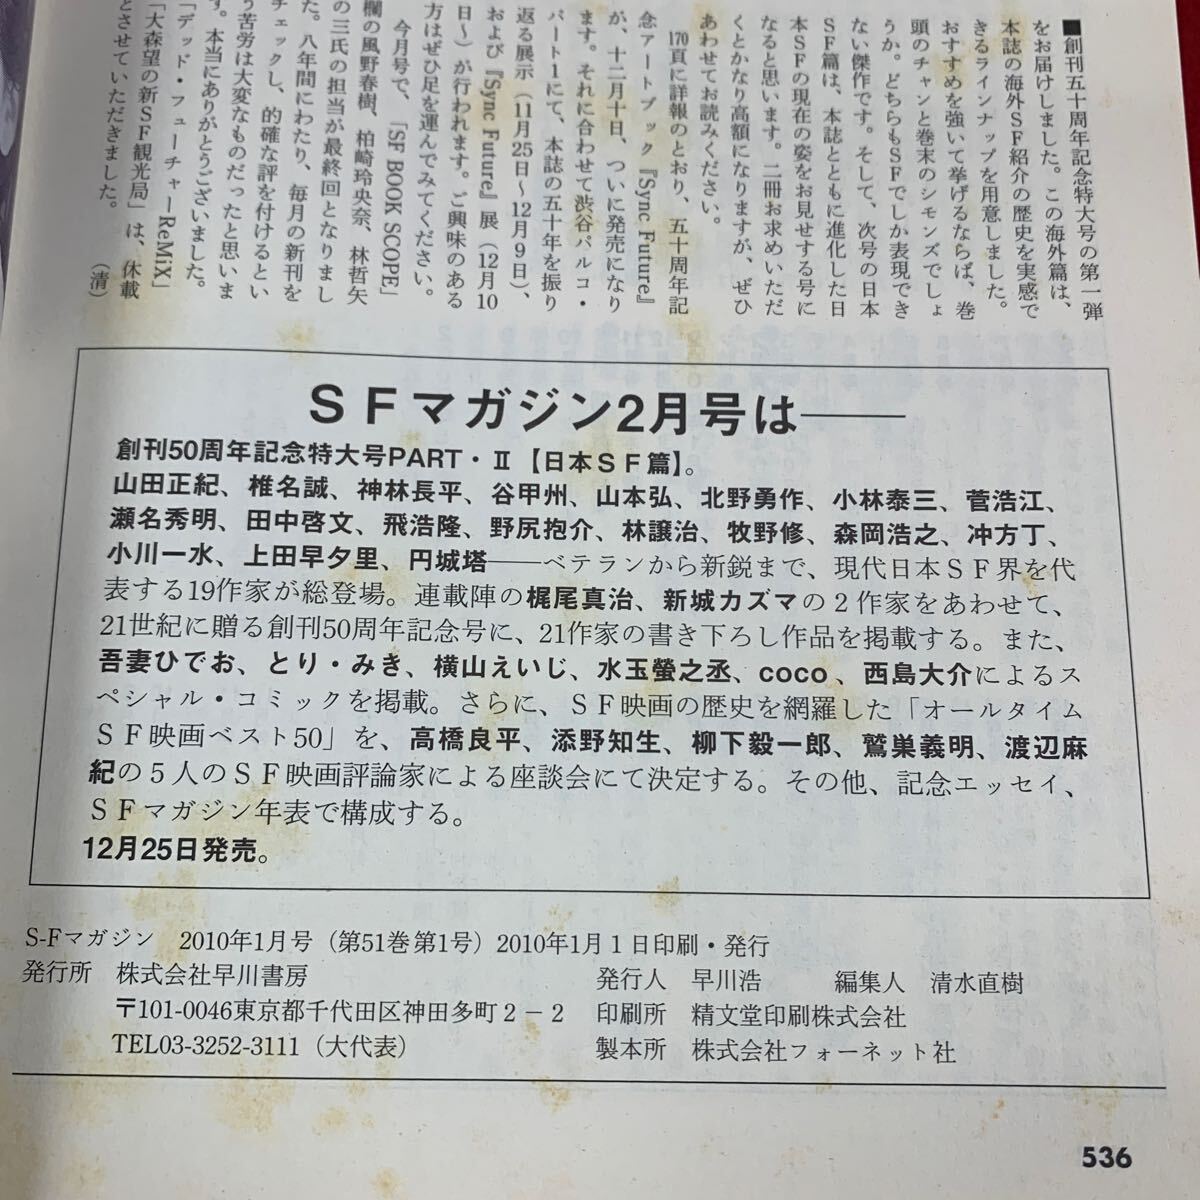 ■創刊五十周年記念特大号の第一弾
をお届けしました。この海外篇は、
本誌の海外SF紹介の歴史を実感で
きるラインナップを用意しました。
おすすめを強いて挙げるならば、巻
頭のチャンと巻末のシモンズでしょ
うか。どちらもSFでしか表現でき
ない傑作です。そして、次号の日本
SF篇は、本誌とともに進化した日
本SFの現在の姿をお見せする号に
なると思います。二冊お求めいただ
くとかなり高額になりますが、ぜひ
あわせてお読みください。
170頁に詳報のとおり、五十周年記
念アートブック『Sync Future』
が、十二月十日、ついに発売になり
ます。それに合わせて渋谷パルコ・
パート1にて、本誌の五十年を振り
返る展示(11月25日〜12月9日)、
および『Sync Future』展(12月10
日〜)が行われます。ご興味のある
方はぜひ足を運んでみてください。
今月号で、「SF BOOK SCOPE」
欄の風野春樹、柏崎玲央奈、林哲矢
の三氏の担当が最終回となりまし
た。八年間にわたり、毎月の新刊を
チェックし、的確な評を付けるとい
う苦労は大変なものだったと思いま
す。本当にありがとうございました。
「デッド・フューチャーReMiX」
「大森望の新SF観光局」は、休載
とさせていただきました。(清)
SFマガジン2月号は——
創刊50周年記念特大号PART・Ⅱ【日本SF篇】。
山田正紀、椎名誠、神林長平、谷甲州、山本弘、北野勇作、小林泰三、菅浩江、
瀬名秀明、田中啓文、飛浩隆、野尻抱介、林譲治、牧野修、森岡浩之、冲方丁、
小川一水、上田早夕里、円城塔——ベテランから新鋭まで、現代日本SF界を代
表する19作家が総登場。連載陣の梶尾真治、新城カズマの2作家をあわせて、
21世紀に贈る創刊50周年記念号に、21作家の書き下ろし作品を掲載する。また、
吾妻ひでお、とり・みき、横山えいじ、水玉螢之丞、coco、西島大介によるス
ペシャル・コミックを掲載。さらに、SF映画の歴史を網羅した「オールタイム
SF映画ベスト50」を、高橋良平、添野知生、柳下毅一郎、鷲巣義明、渡辺麻
紀の5人のSF映画評論家による座談会にて決定する。その他、記念エッセイ、
SFマガジン年表で構成する。
12月25日発売。
S-Fマガジン 2010年1月号(第51巻第1号)2010年1月1日印刷・発行
発行所 株式会社早川書房 発行人 早川浩 編集人 清水直樹
〒101-0046東京都千代田区神田多町2-2 印刷所 精文堂印刷株式会社
TEL03-3252-3111(大代表) 製本所 株式会社フォーネット社
536